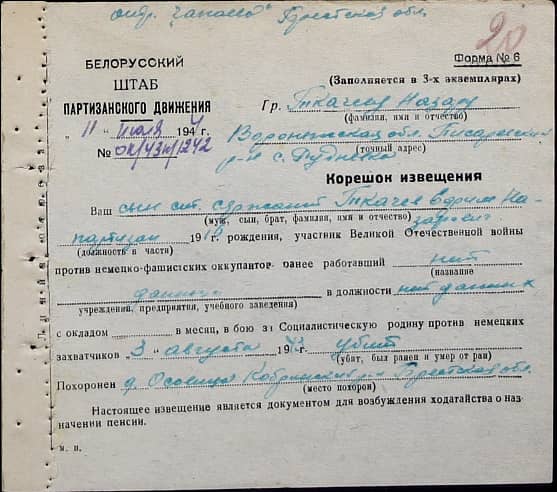 отр. "Чапаева" Брестская обл.
20
БЕЛОРУССКИЙ
ШТАБ
ПАРТИЗАНСКОГО ДВИЖЕНИЯ
"11" июля 1944 г.
№ ок/43ш/1242
Форма № 6
(Заполняется в 3-х экземплярах)
Гр. Ткачеву Назару
(фамилия, имя и отчество)
Воронежская обл. Писаревский
(точный адрес)
р-н с.
Корешок извещения
Ваш сын ст. сержант Ткачев Ефрем На-
(муж, сын, брат, фамилия, имя и отчество) зарович
партизан 19 рождения, участник Великой Отечественной войны
(должность в части)
против немецко-фашистских оккупантов ранее работавший нет
(название
данных в должности нет данных
учреждения, предприятия, учебного заведения)
с окладом в месяц, в бою за Социалистическую родину против немецких
захватчиков "3" августа 194 г. убит
(убит, был ранен и умер от ран)
Похоронен д. Осовцы Кобринский р-н Брестская обл.
(место похорон)
Настоящее извещение является документом для возбуждения ходатайства о наз-
начении пенсии.
м. п.